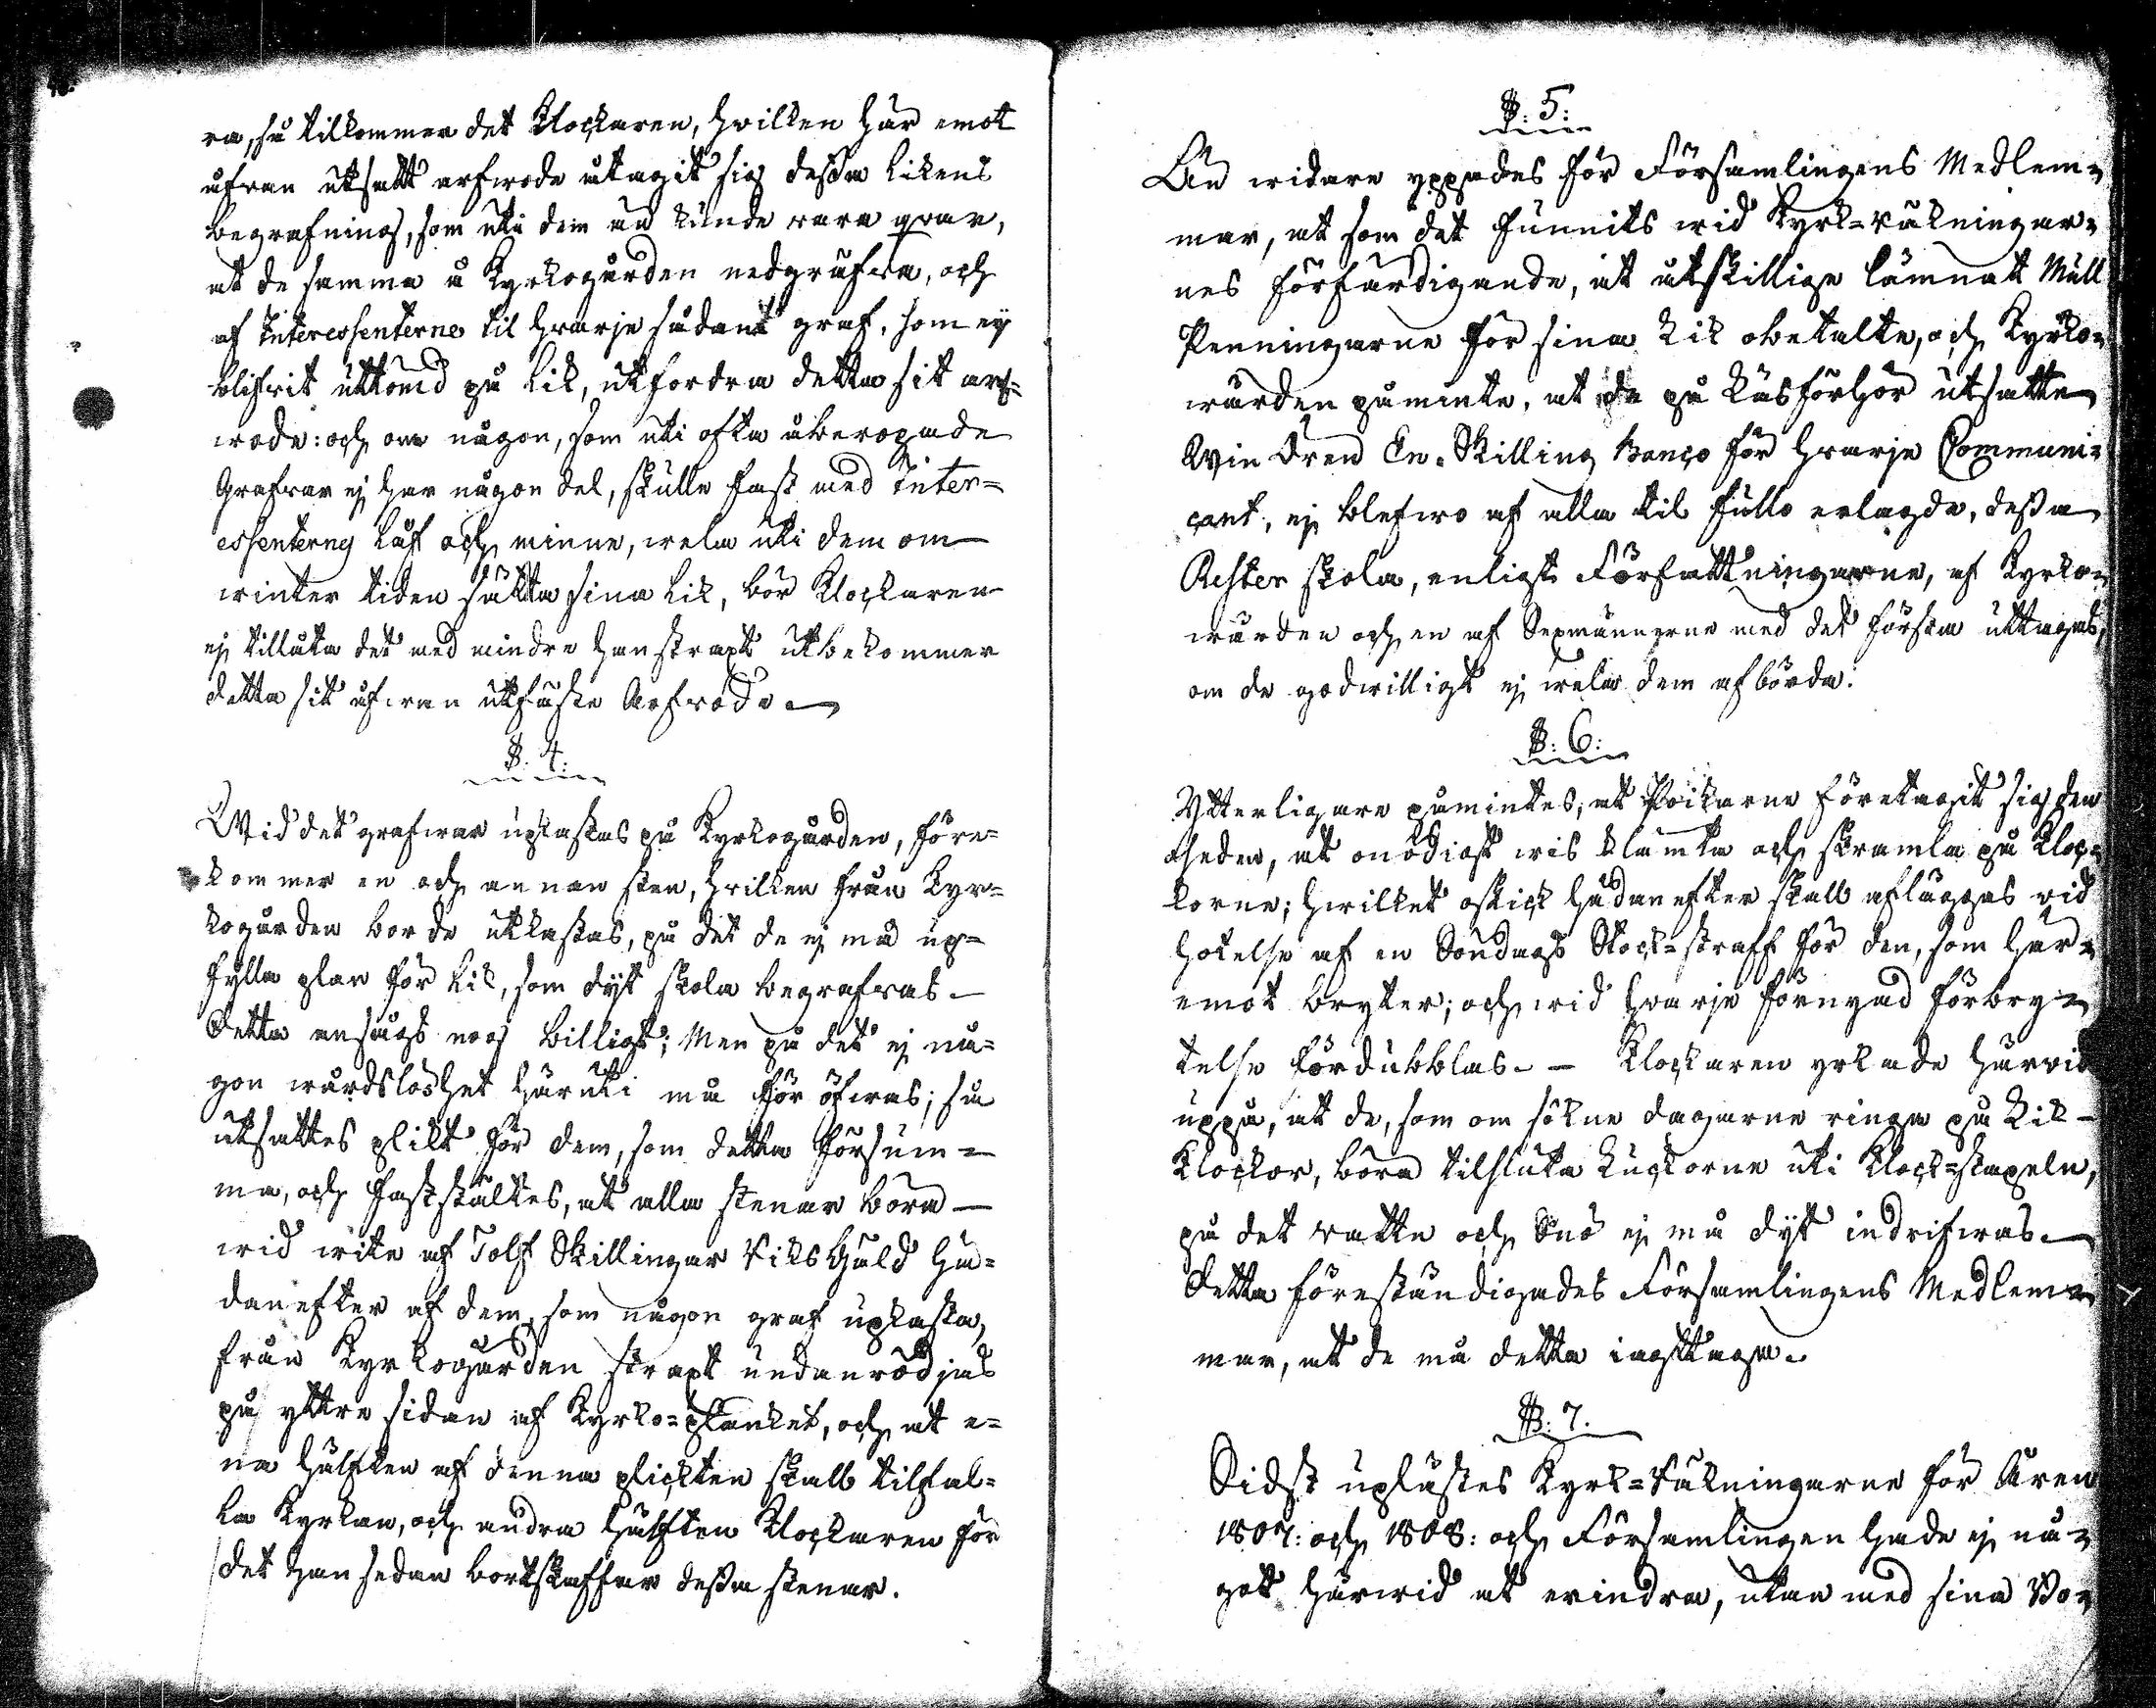 ra, så tilkommer det Klockaren, hvilken här emot
ofvan utsatt arfwode åtagit sig dessa likens
begrafning, som uti dem än kunde vara qvar,
at de samma å Kyrkogården nedgräfva, och
af Interessenterne til hvarje sådant graf, som ej
blifvit uttömd på lik, utfordra detta sit arf-
wode: och om någon, som uti ofta åberopade
Grafvar ej har någon del, skulle fast med Inter-
essenterns låf och minne, wela uti dem om
winter tiden sätta sina lik, bör Klockaren
ej tillåta det med mindre han straxt utbekommer
detta sit ofwan utfäste Arfvode.
§. 4.
Wid det grafwar upkastas på Kyrkogården, före-
kommer en och annan sten, hvilken från Kyr-
kogården borde utkastas, på det de ej må up-
fylla plan för lik, som dyt skola begrafvas.
Detta ansågs nog billigt; Men på det ej nå-
gon wårdslöshet häruti må för öfwas; så
utsattes plikt för dem, som detta försum-
ma, och fastställtes, at alla stenar böra
wid wite af Tolf Skillingar Riksgäld hä-
danefter af dem, som någon graf upkasta,
från Kyrkogården straxt undanrödjas
på yttre sidan af Kyrko-planket, och at e-
na hälften af denna plickten skall tilfal-
la Kyrkan, och andra hälften Klockaren för
det han sedan bortskaffar dessa stenar.
§. 5:
Än widare yppades för Församlingens Medlem-
mar, at som det funnits wid Kyrk-räkningar-
nes förfärdigande, at åtskillige lämnatt Mull
Penningarne för sina Lik obetalte, och Kyrko-
wärden påminte, at de på Läsförhör utsatte
Win Ören En Skilling Banco för hvarje Communi-
cant, ej blefwo af alla til fullo erlagde, dessa
Rester skola, enligt Författningarne, af Kyrko-
wärden och en af Sexmännerne med det första uttagas,
om de godwilligt ej wela dem afbörda.
§. 6:
Ytterligare påmintes, at Poikarne företagit sig den
oseden, at onödigt vis klämta och skramla på Kloc-
korne; hwilket oskick hädanefter skall afläggas vid
hotelse af en Söndags Stock-straff för den, som här-
emot bryter; och wid hvarje förnyad förbry-
telse fördubblas. - Klockaren yrkade härvid
uppå, at de, som om sökne dagarne ringa på Lik-
Klockor, böra tilsluta Luckorne uti Klock-stapeln,
på det vatten och Snö ej må dyt indrifwas.
Detta föreständigades Församlingens Medlem-
mar, at de må detta iagttaga.
§. 7.
Sidst uplästes Kyrk-Räkningarne för Åren
1807: och 1808: och Församlingen hade ej nå-
got härwid at erindra, utan med sina Bo-